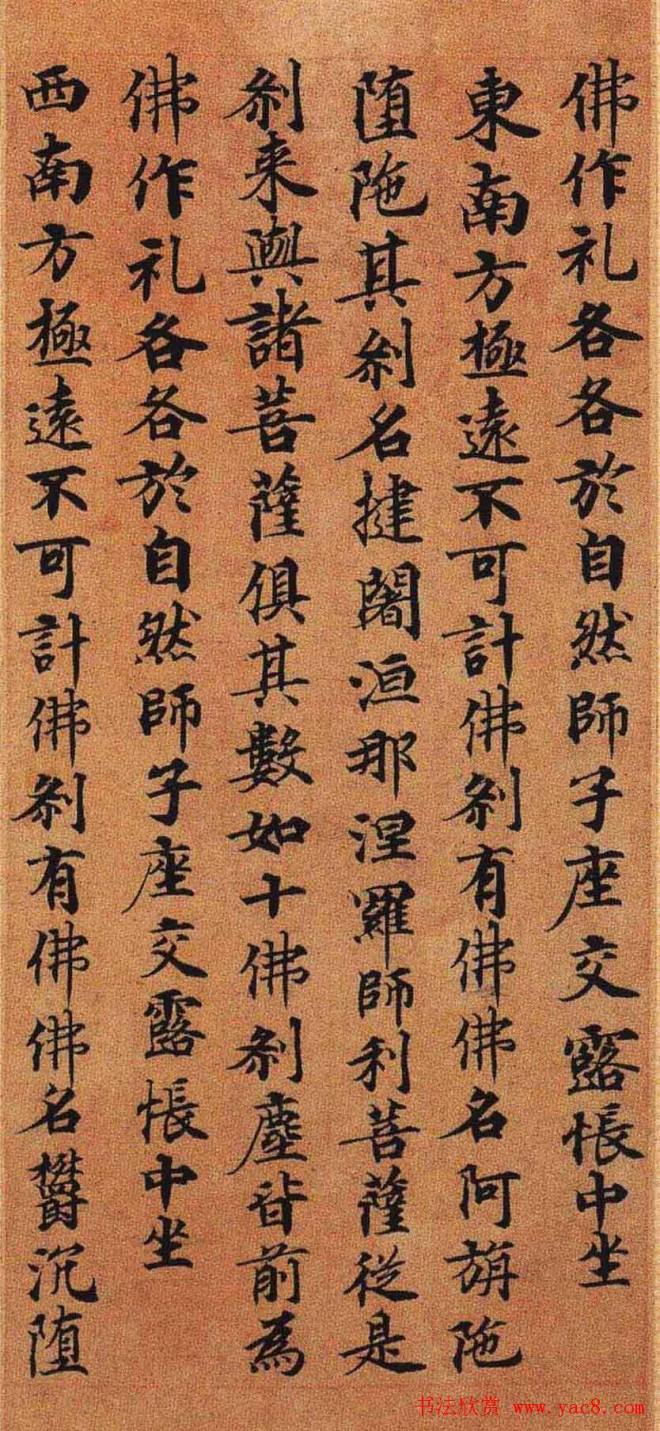 佛作礼各各於自然師子座交露帳中坐
東南方極遠不可計佛刹有佛佛名阿旃陁
堕陁其刹名揵闍洹那涅羅師利菩薩從是
刹来與諸菩薩俱其數如十佛刹塵皆前為
佛作礼各各於自然師子座交露帳中坐
西南方極遠不可計佛刹有佛佛名欝沉堕
书法欣赏 www.yac8.com